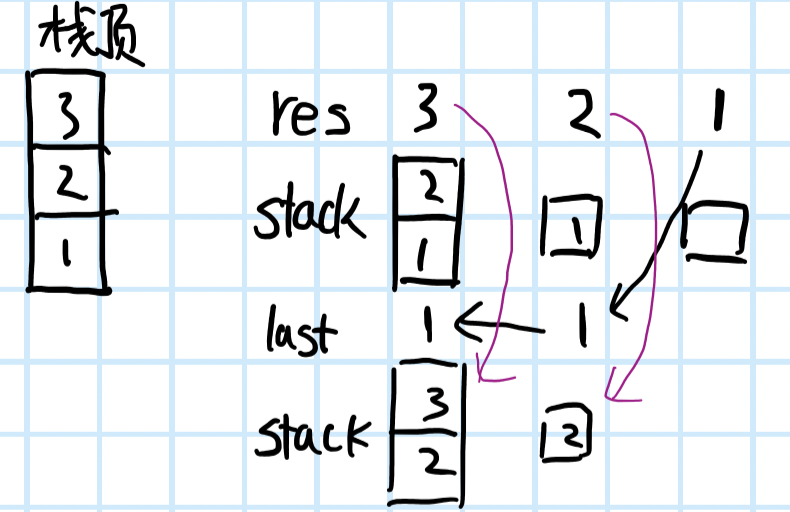 栈顶
3
2
1
res 3 2 1
stack
2
1
1
last 1 1
stack
3
2
2